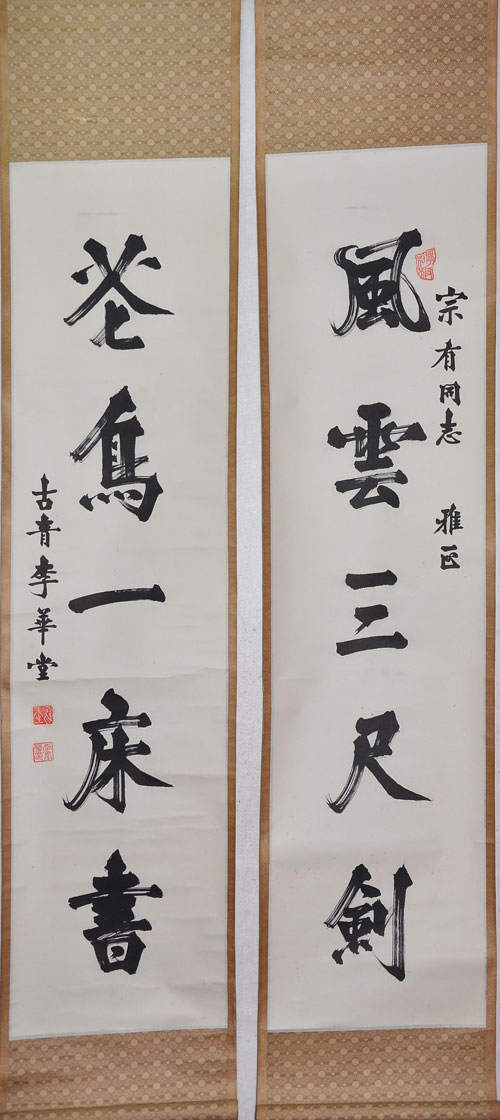 宗有同志 雅正
風雲三尺劍
花鳥一床書
古青李華堂